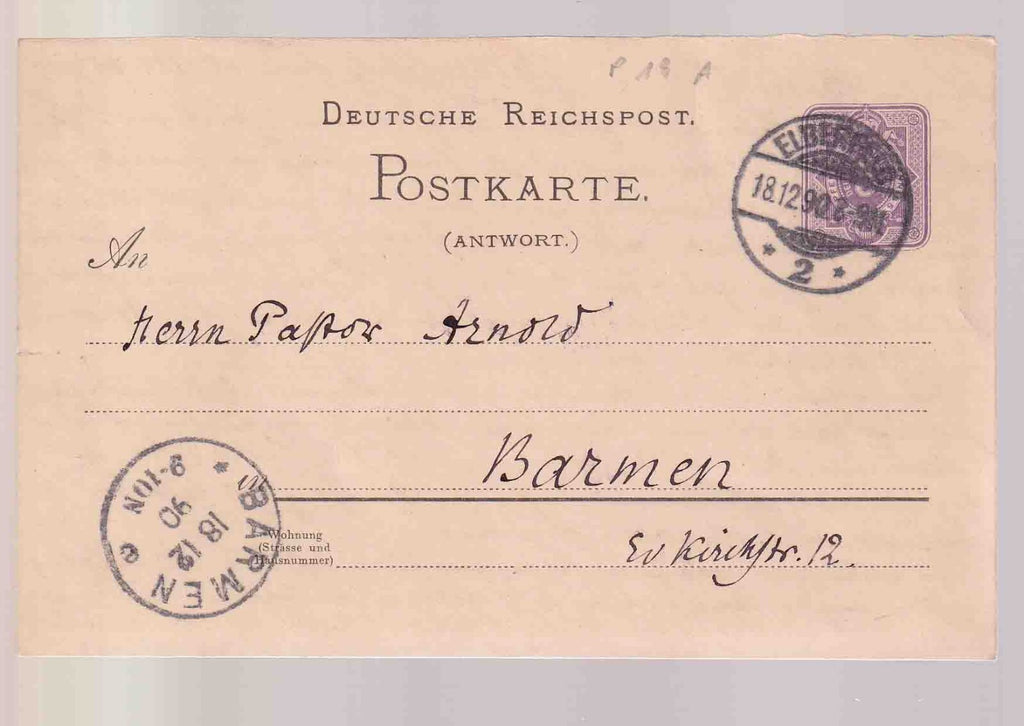 P 19 A
DEUTSCHE REICHSPOST.
POSTKARTE.
(ANTWORT.)
ELBERFELD
18.12.90
* 2 *
An
Herrn Pastor Arnold
Barmen
Wohnung
(Strasse und
Hausnummer)
Ev Kirchstr. 12.
* BARMEN e
18 12
90
9-10N